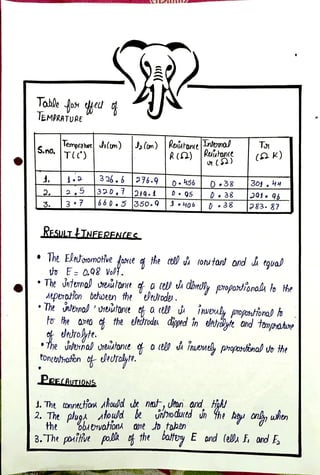 Table for effect of
TEMPRATURE
S.no. Temprature T(C) J1(cm) J2(cm) Resistance R (Ω) Internal Resistance r (Ω) Tr (Ω K)
1. 1.2 326.6 276.9 0.456 0.38 301.44
2. 2.5 320.7 219.1 0.95 0.38 291.96
3. 3.7 660.5 350.9 1.406 0.38 283.87
RESULT & INFERENCES
• The Electromotive force of the cell is constant and is equal
to E = 0.98 Volt.
• The internal resistance of a cell is directly proportional to the
seperation between the electrodes.
• The internal resistance of a cell is inversely proportional to
to the area of the electrodes dipped in electrolyte and temprature
of electrolyte.
• The internal resistance of a cell is inversely proportional to the
concentration of electrolyte.
PRECAUTIONS
1. The connections should be neat, clean and tight
2. The plugs should be introduced in the keys only when
the observations are to taken
3. The positive polls of the battery E and cells E1 and E2